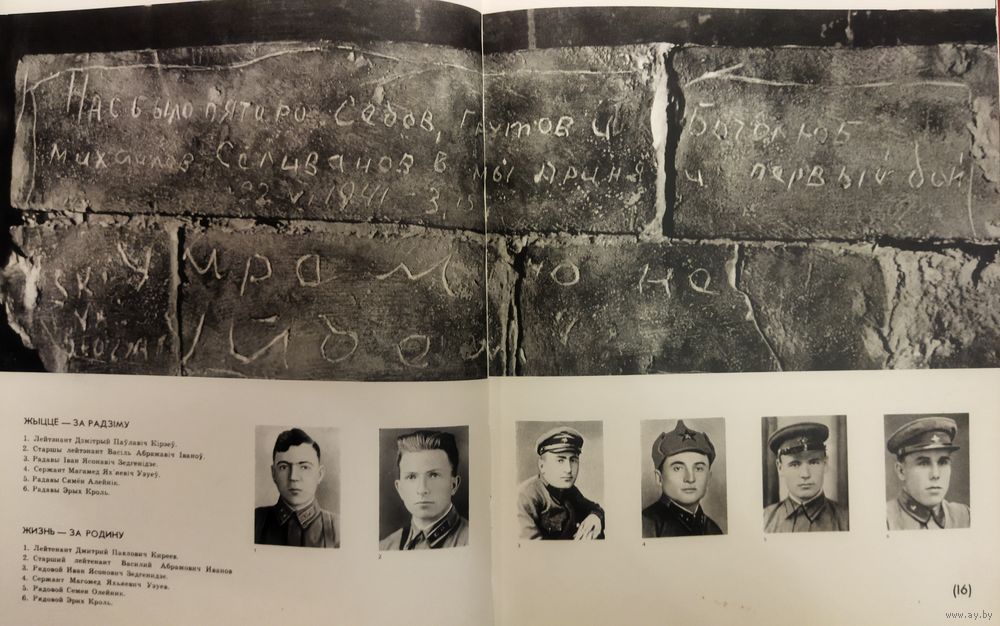 Нас было пятеро Седов, Грутов И Боголюб
Михайлов Селиванов в мы приня и первый бой
22 VI 1941 3,15
Умрём но не
уйдем
ЖЫЦЦЁ — ЗА РАДЗІМУ
1. Лейтэнант Дзмітрый Паўлавіч Кірэеў.
2. Старшы лейтэнант Васіль Абрамавіч Іваноў.
3. Радавы Іван Ясонавіч Зедгенідзе.
4. Сержант Магамед Ях'явіч Узуеў.
5. Радавы Сямён Алейнік.
6. Радавы Эрых Кроль.
ЖИЗНЬ — ЗА РОДИНУ
1. Лейтенант Дмитрий Павлович Киреев.
2. Старший лейтенант Василий Абрамович Иванов
3. Рядовой Иван Ясонович Зедгенидзе.
4. Сержант Магомед Яхьяевич Узуев.
5. Рядовой Семен Олейник.
6. Рядовой Эрих Кроль.
1
2
3
4
5
6
(16)
www.ay.by